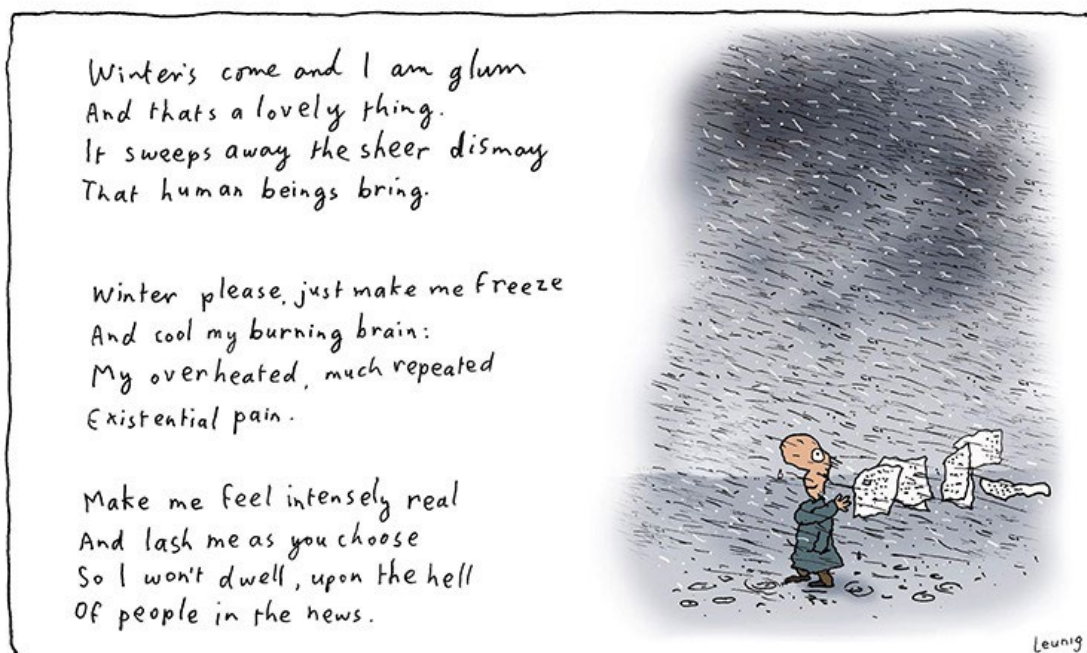 Winter's come and I am glum
And thats a lovely thing.
It sweeps away the sheer dismay
That human beings bring.
Winter please, just make me freeze
And cool my burning brain:
My overheated, much repeated
Existential pain.
Make me feel intensely real
And lash me as you choose
So I won't dwell, upon the hell
Of people in the news.
Leunig